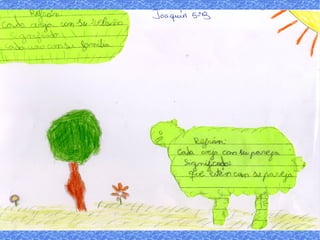 Refrán:
Cada oveja con su
Significado:
Cada uno con su familia
Joaquín 5ºB
Refrán:
Cada oveja con su pareja
Significado:
que estén con su pareja